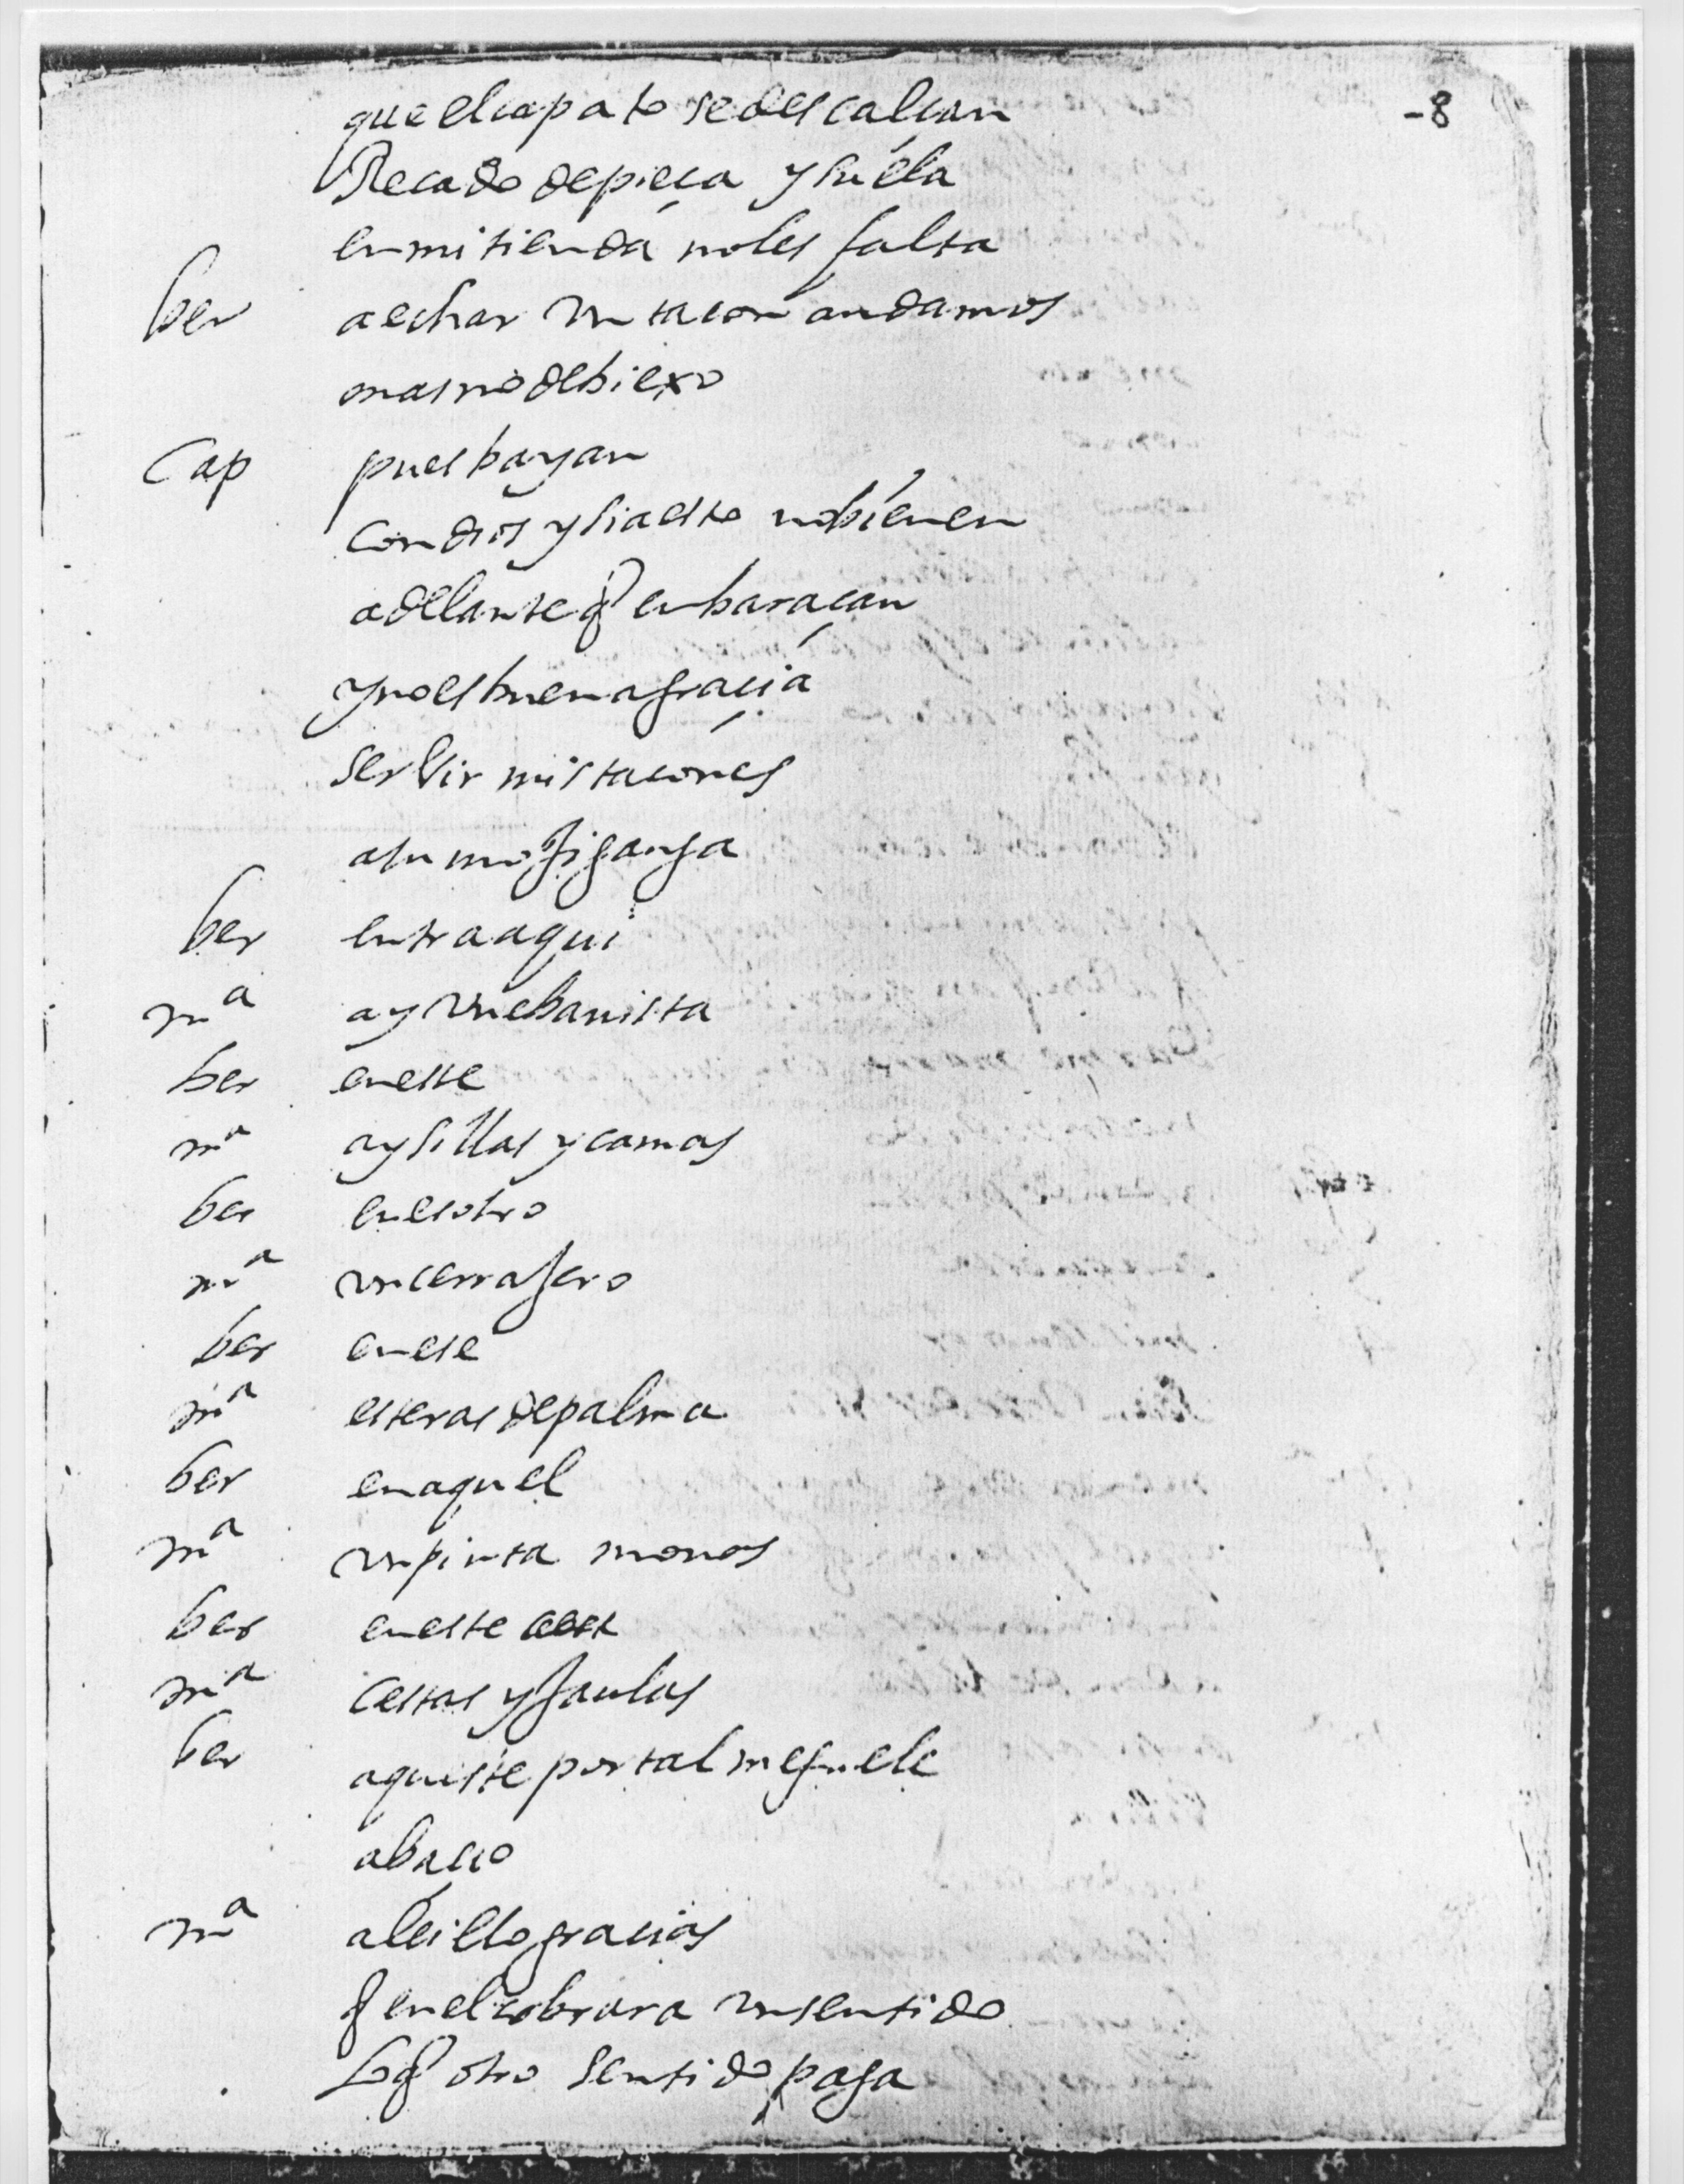 -8
que el çapato se descalçan
Recado de pieça y suela
en mi tienda no les falta
ber a echar un tacon andamos
mas no de biexo
Cap pues bayan
con dios y si a esto no bienen
adelante q enbaraçan
y no es buena graçia
serbir mis tacones
a su mojiganga
ber entra aqui
mª ay un ebanista
ber en este
mª ay sillas y camas
ber en esotro
mª un cerrajero
ber en ese
mª esteras de palma
ber en aquel
mª un pinta monas
ber en este
mª cestas y jaulas
ber aqueste portal me guele
a baçio
mª a leillo gracias
q en el cobrara un sentido
lo q otro sentido paga